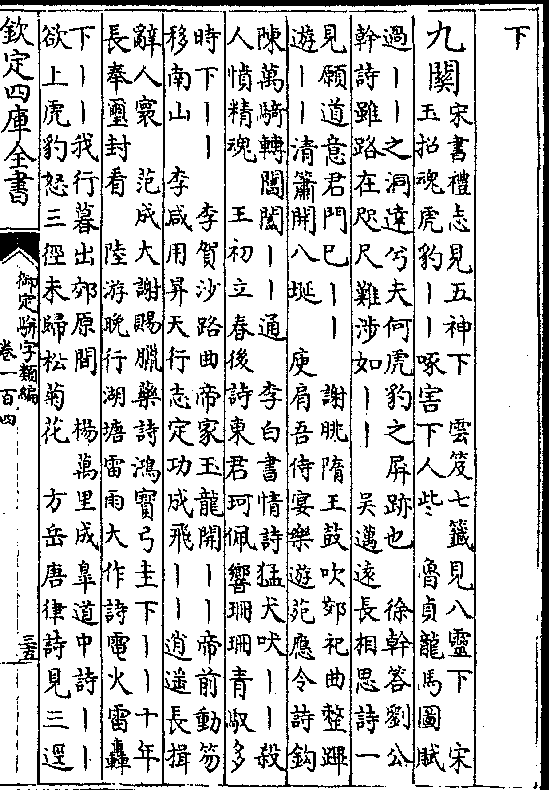 下
九關
宋書禮志見五神下　雲笈七籤見八靈下　宋
玉招魂虎豹丨丨啄害下人些　魯貞龍馬圖賦
過丨丨之洞達兮夫何虎豹之屏跡也　徐幹答劉公
幹詩雖路在咫尺難涉如丨丨　吳邁遠長相思詩一
見願道意君門已丨丨　謝朓隋王鼓吹郊祀曲整蹕
遊丨丨清簫開八埏　庾肩吾侍宴樂遊苑應令詩鉤
陳萬騎轉閶闔丨丨通　李白書情詩猛犬吠丨丨殺
人憤精魂　王初立春後詩東君珂佩響珊珊青馭多
時下丨丨丨　李賀沙路曲帝家玉龍開丨丨帝前動笏
移南山　李咸用昇天行志定功成飛丨丨逍遙長揖
辭人寰　范成大謝賜臘藥詩鴻寶弓圭下丨丨丨十年
長奉璽封看　陸游晚行湖塘雷雨大作詩電火雷轟
下丨丨我行暮出郊原間　楊萬里成皐道中詩丨丨
欲上虎豹怒三徑未歸松菊花　方岳唐律詩見三逕
欽定四庫全書
御定駢字類編
卷一百四
三五